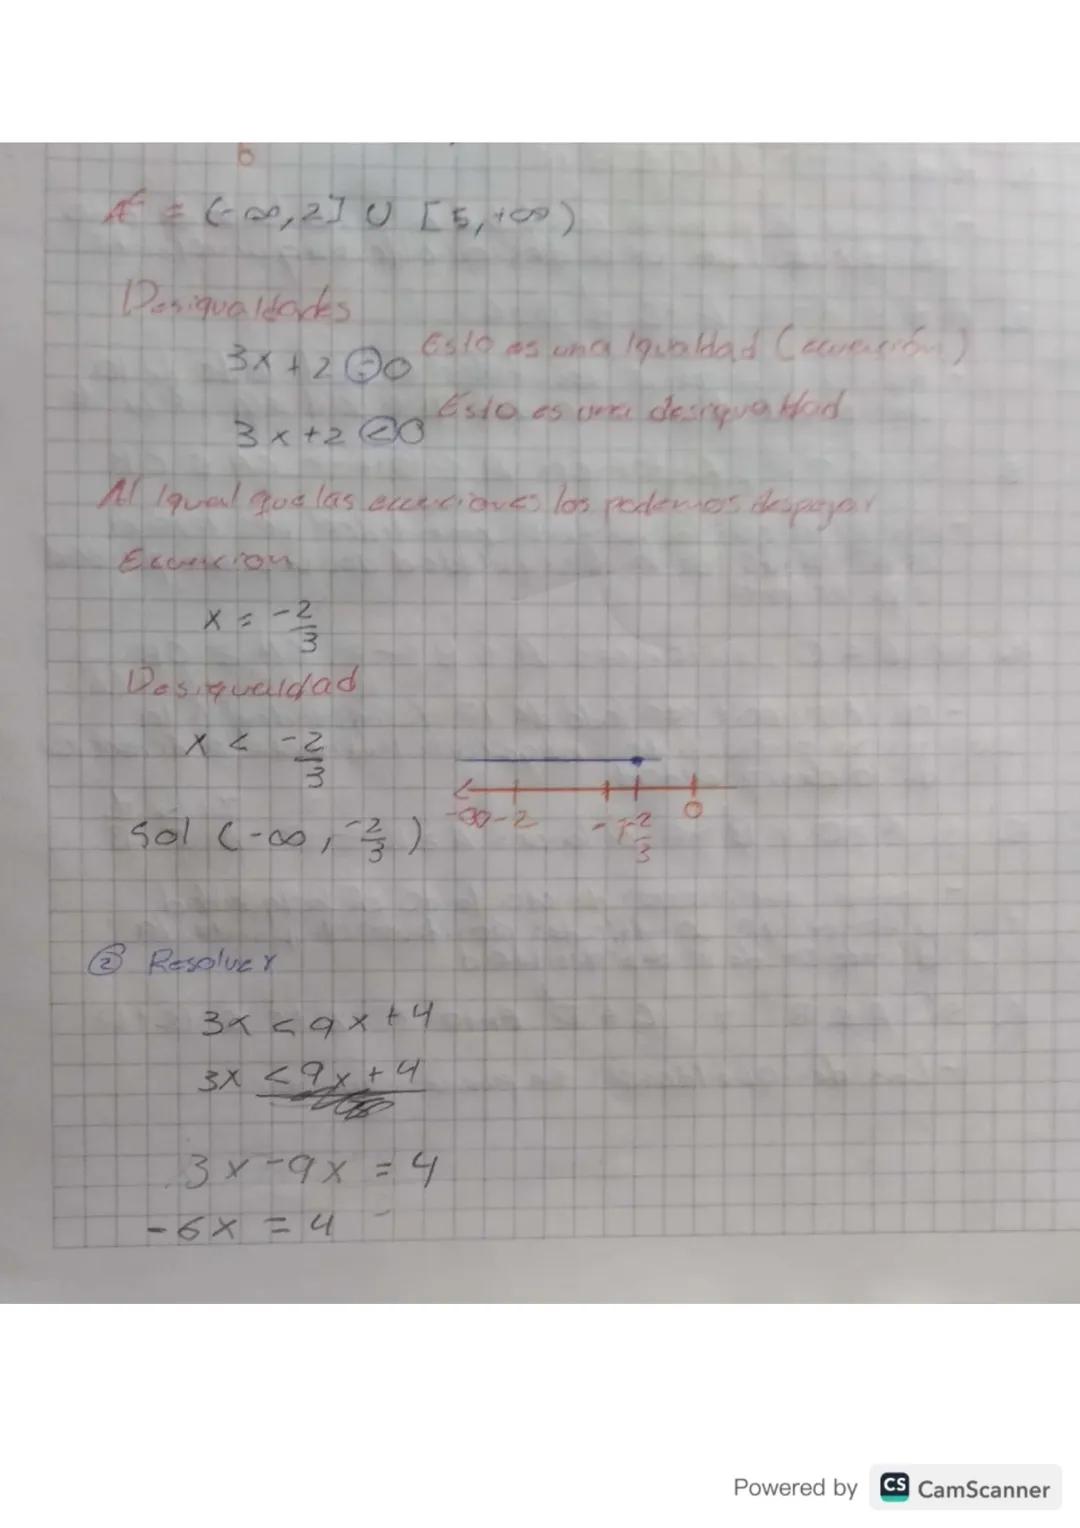 6
A^c = (-∞,2] U [5,+∞)
Desigualdades
3x+2 = 0 Esto es una Igualdad (ecuación)
3x+2 < 0 Esto es una desigualdad
Al Igual que las ecuaciones los podemos despejar
Ecuacion
x = -2/3
Desigualdad
x < -2/3
-∞ -2 -1 -2/3 0
Sol (-∞, -2/3)
② Resolver
3x < 9x+4
3x < 9x+4
3x-9x = 4
-6x = 4
Powered by CS CamScanner